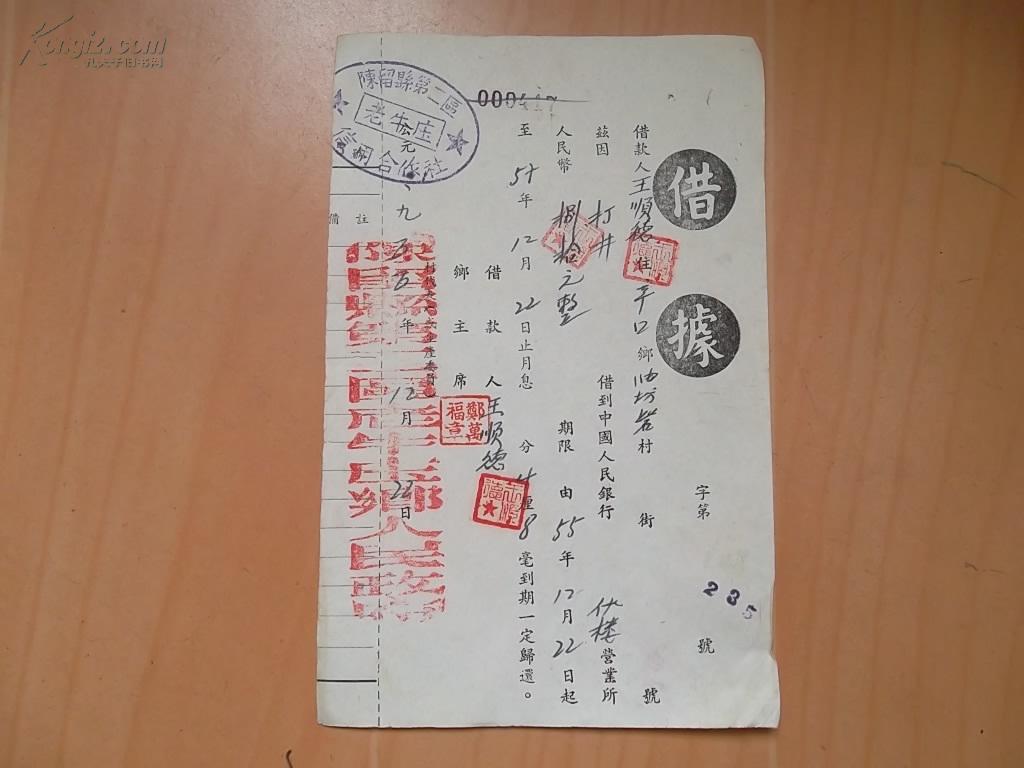 Kongfz.com
孔夫子旧书网
借據
字第 235 號
借款人王順德住平口鄉油坊 村 街 號
茲因 打井 借到中國人民銀行 仇楼營業所
人民幣 捌拾元整 期限 由 55 年 12 月 22 日起
至 5 年 12 月 22 日止月息 分 4 厘 8 毫到期一定歸還。
借款人 王順德
鄉主席
鄭萬福章
一九五五年 12 月 22 日
陳留縣第二區
老牛庄
信用合作社
備註